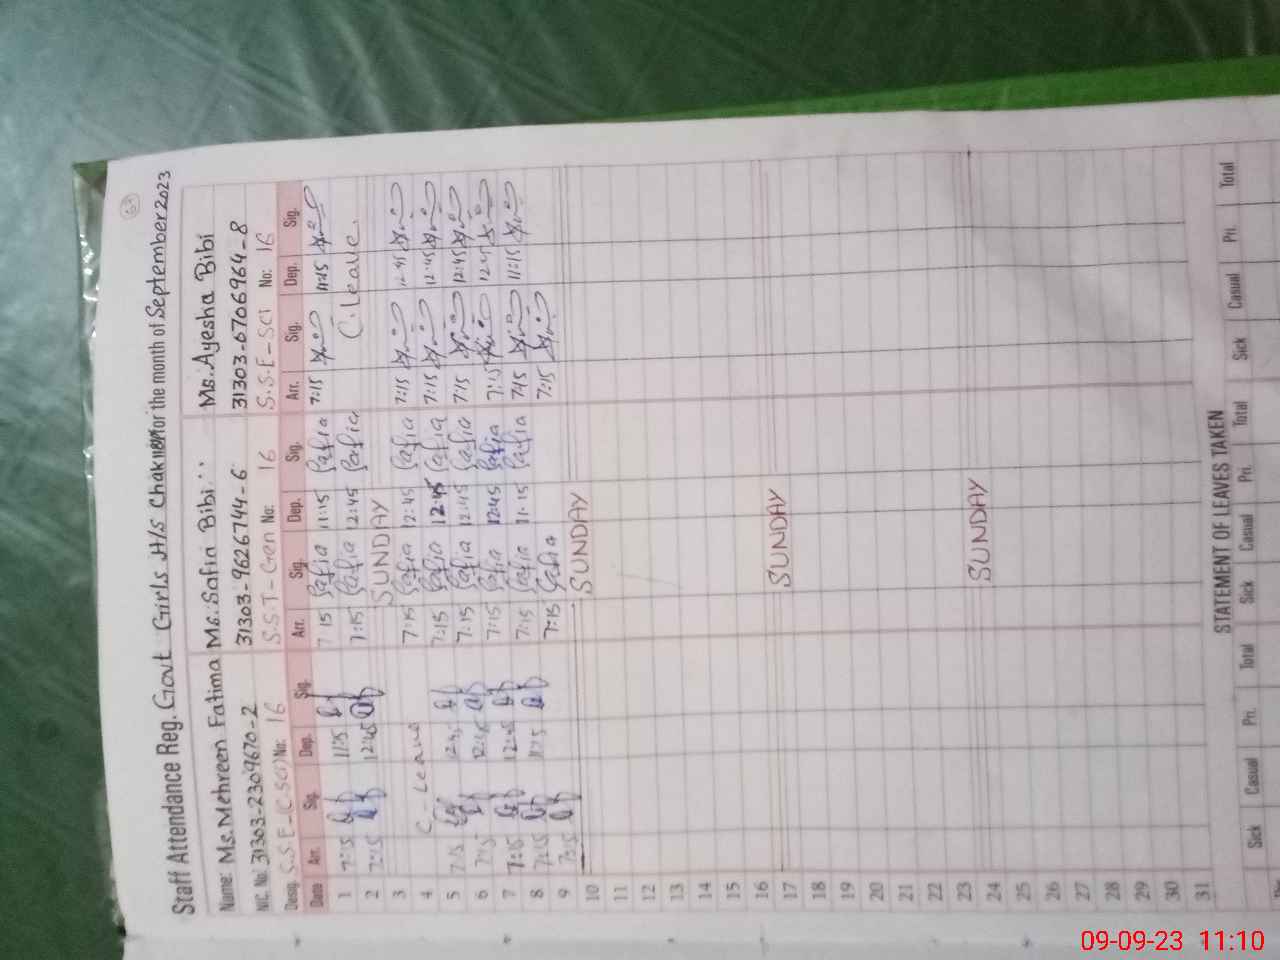 Staff Attendance Reg. Govt Girls H/S Chak for the month of September 2023
Name: Ms. Mehreen Fatima Ms. Safia Bibi Ms. Ayesha Bibi
NIC. No. 31303-2309670-2 31303-9626744-6 31303-6706964-8
Desig. S.S.E-(C.Sci) No: 16 S.S.T-Gen No: 16 S.S.E-SCI No: 16
Date Arr. Sig. Dep. Sig. Arr. Sig. Dep. Sig. Arr. Sig. Dep. Sig.
1 7:15 11:15 7:15 Safia 11:15 Safia 7:15 11:15
2 7:15 12:45 7:15 Safia 12:45 Safia C. Leave.
3 SUNDAY
4 C-Leave 7:15 Safia 12:45 Safia 7:15 12:45
5 7:15 12:45 7:15 Safia 12:45 Safia 7:15 12:45
6 7:15 12:45 7:15 Safia 12:45 Safia 7:15 12:45
7 7:15 12:45 7:15 Safia 12:45 Safia 7:15 12:45
8 7:15 11:15 7:15 Safia 11:15 Safia 7:15 11:15
9 7:15 7:15 Safia 7:15
10 SUNDAY
11
12
13
14
15
16
17 SUNDAY
18
19
20
21
22
23
24 SUNDAY
25
26
27
28
29
30
31
STATEMENT OF LEAVES TAKEN
Sick Casual Pri. Total Sick Casual Pri. Total Sick Casual Pri. Total
09-09-23 11:10